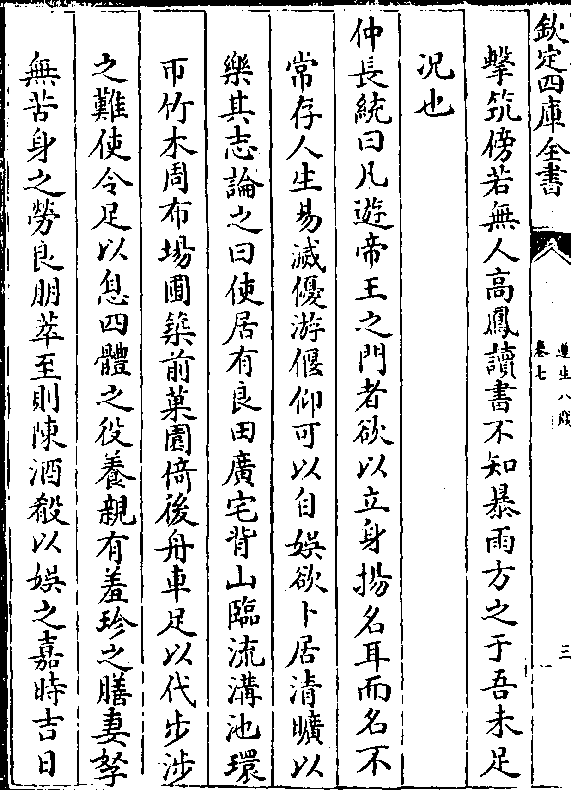 欽定四庫全書
遵生八牋
卷七
三
擊筑傍若無人高鳳讀書不知暴雨方之于吾未足
況也
仲長統曰凡遊帝王之門者欲以立身揚名耳而名不
常存人生易滅優游偃仰可以自娛欲卜居清曠以
樂其志論之曰使居有良田廣宅背山臨流溝池環
帀竹木周布場圃築前菓園倚後舟車足以代步涉
之難使令足以息四體之役養親有羞珍之膳妻孥
無苦身之勞良朋萃至則陳酒殽以娛之嘉時吉日